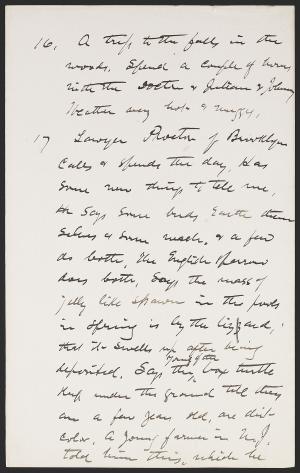 16, A trip to the falls in the
woods. Spend a couple of hours
with the Doctor & Julian & Johnny
Weather very hot & muggy,
17 Lawyer Procter of Brooklyn
calls & spends the day, Has
some new things to tell me,
He says some birds, Earth them
selves & some wash, & a few
do both, The English sparrow
does both, Says the mass of
jelly like spawn in the pools
in spring is by the lizzard,
that it swells up after being
deposited. Says the young of the box turtle
keep under the ground till they
are a few years old, are dirt
color. A young farmer in N.J.
told him this, which he